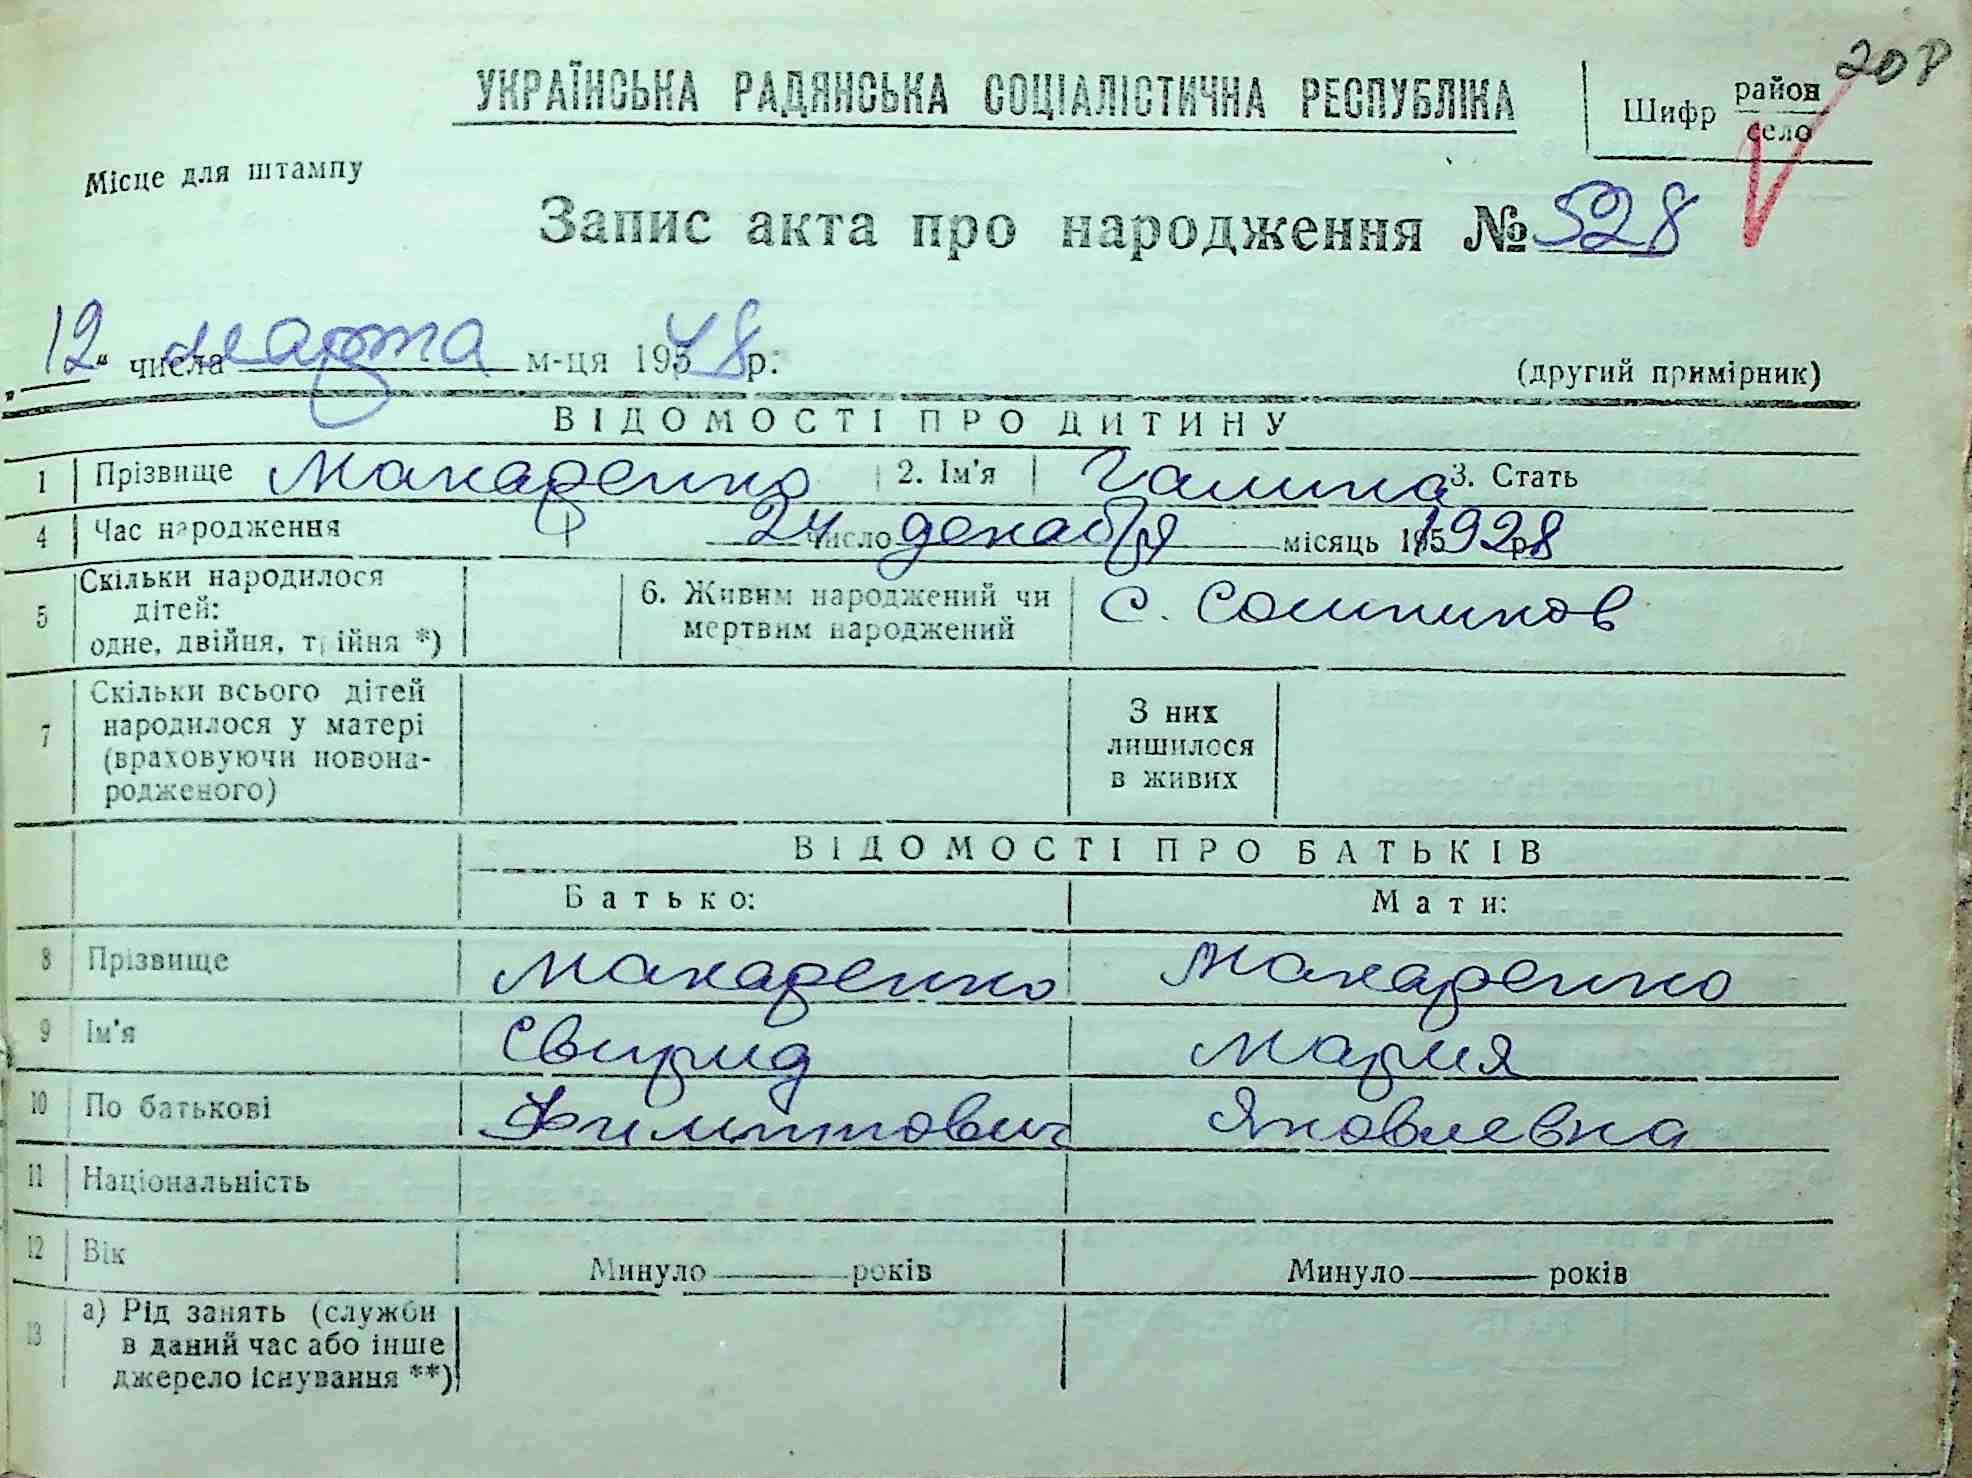 208
УКРАЇНСЬКА РАДЯНСЬКА СОЦІАЛІСТИЧНА РЕСПУБЛІКА
Шифр район
село
Місце для штампу
Запис акта про народження № 528
„12“ числа марта м-ця 1948 р.
(другий примірник)
ВІДОМОСТІ ПРО ДИТИНУ
1 Прізвище Макаренко 2. Ім'я Галина 3. Стать
4 Час народження 24 число декабря місяць 1928 р.
5 Скільки народилося дітей: одне, двійня, трійня *) 6. Живим народжений чи мертвим народжений с. Сошников
7 Скільки всього дітей народилося у матері (враховуючи новона-родженого) З них лишилося в живих
ВІДОМОСТІ ПРО БАТЬКІВ
Батько: Мати:
8 Прізвище Макаренко Макаренко
9 Ім'я Свирид Мария
10 По батькові Филиппович Яковлевна
11 Національність
12 Вік Минуло років Минуло років
13 а) Рід занять (служби в даний час або інше джерело існування **)